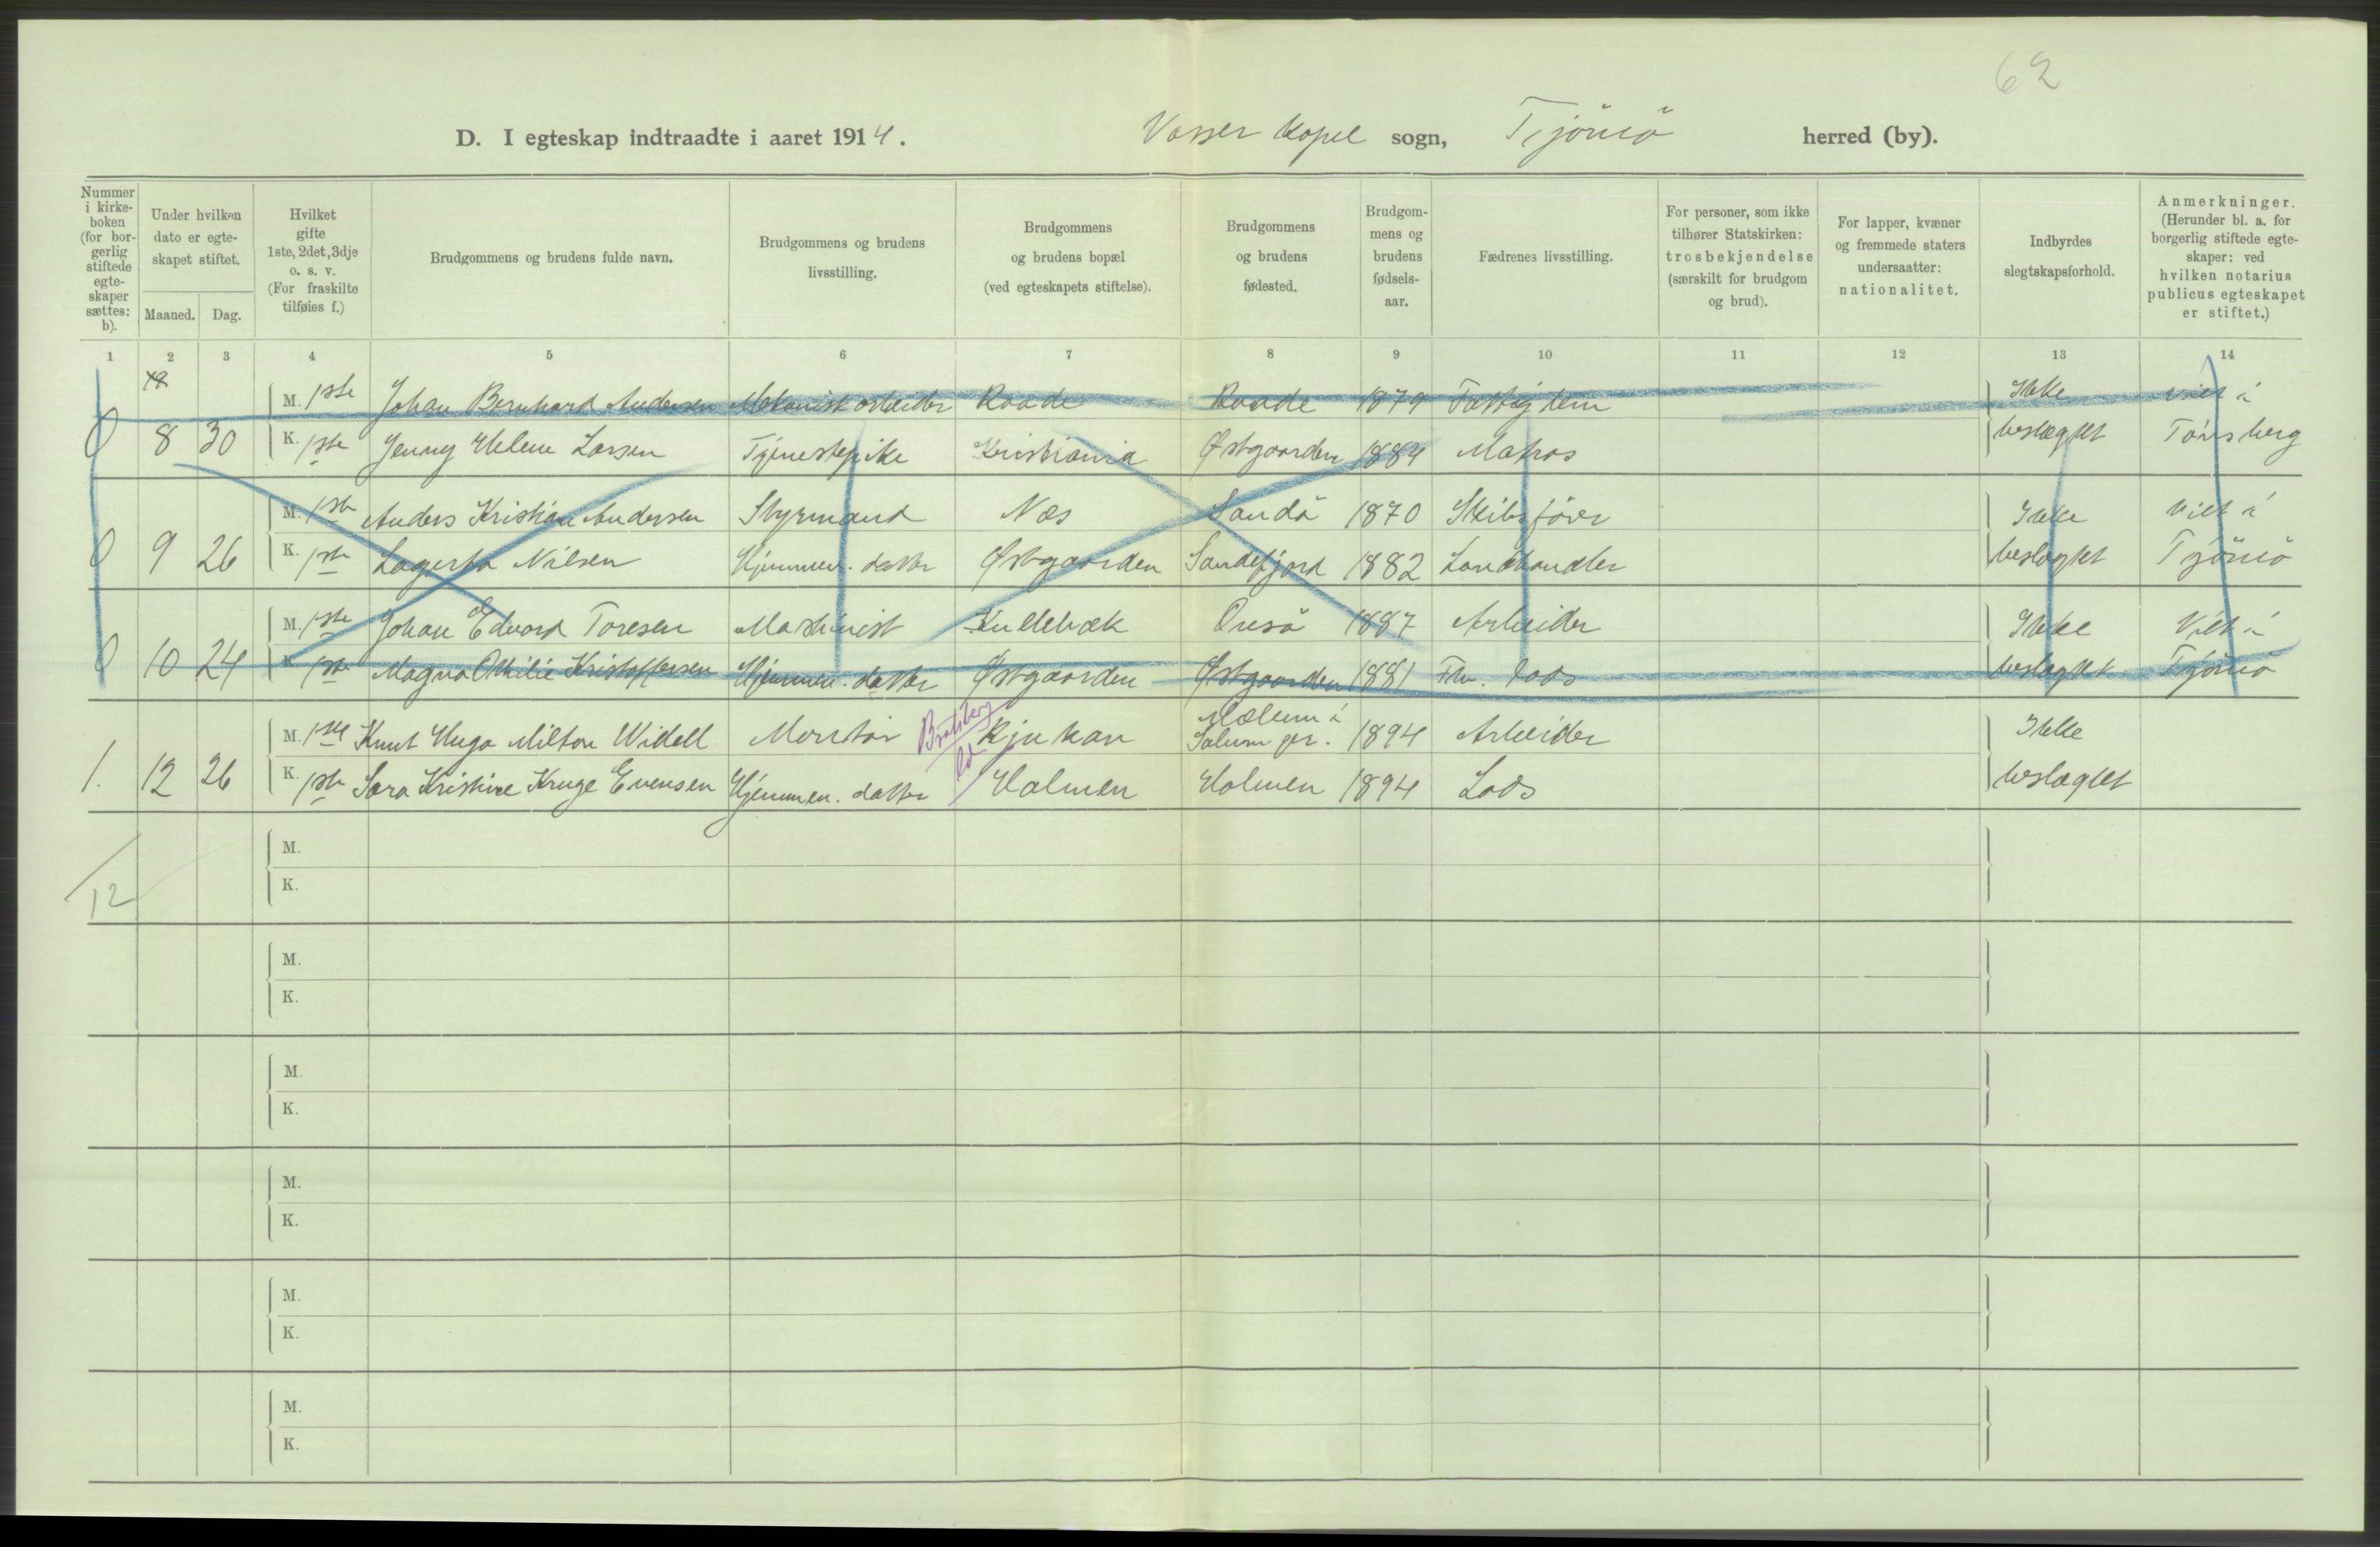 62
D. I egteskap indtraadte i aaret 1914. Vasser Kapel sogn, Tjömö herred (by).
Nummer i kirke-boken (for bor-gerlig stiftede egte-skaper sættes: b).
Under hvilken dato er egte-skapet stiftet.
Maaned. Dag.
Hvilket gifte 1ste, 2det, 3dje o. s. v. (For fraskilte tilføies f.)
Brudgommens og brudens fulde navn.
Brudgommens og brudens livsstilling.
Brudgommens og brudens bopæl (ved egteskapets stiftelse).
Brudgommens og brudens fødested.
Brudgom-mens og brudens fødsels-aar.
Fædrenes livsstilling.
For personer, som ikke tilhører Statskirken: trosbekjendelse (særskilt for brudgom og brud).
For lapper, kvæner og fremmede staters undersaatter: nationalitet.
Indbyrdes slegtskapsforhold.
Anmerkninger. (Herunder bl. a. for borgerlig stiftede egte-skaper: ved hvilken notarius publicus egteskapet er stiftet.)
1 2 3 4 5 6 7 8 9 10 11 12 13 14
M. 1ste Johan Bernhard Andersen Mekanisk arbeider Raade Raade 1879 Ikke viet i
0 8 30 K. 1ste Jenny Helene Larsen Tjenestepike Kristiania Østgaarden 1884 Matros beslægtet Tönsberg
M. 1ste Anders Kristian Andersen Styrmand Næs Sandö 1870 Skibsförer Ikke viet i
0 9 26 K. 1ste Lagerta Nilsen Hjemmev. datter Østgaarden Sandefjord 1882 Landhandler beslægtet Tjömö
M. 1ste Johan Edvard Toresen Maskinist Kullebæk Onsö 1887 Arbeider Ikke Viet i
0 10 24 K. 1ste Magna Othilie Kristoffersen Hjemmev. datter Østgaarden Østgaarden 1881 Fhv. lods beslægtet Tjömö
M. 1ste Knut Hugo Milton Widell Montör Bratsberg Rjukan Mælum i Solum pr. 1894 Arbeider Ikke
1. 12 26 K. 1ste Sara Kristine Kruge Evensen Hjemmev. datter Holmen Holmen 1894 Lods beslægtet
M.
K.
12
M.
K.
M.
K.
M.
K.
M.
K.
M.
K.